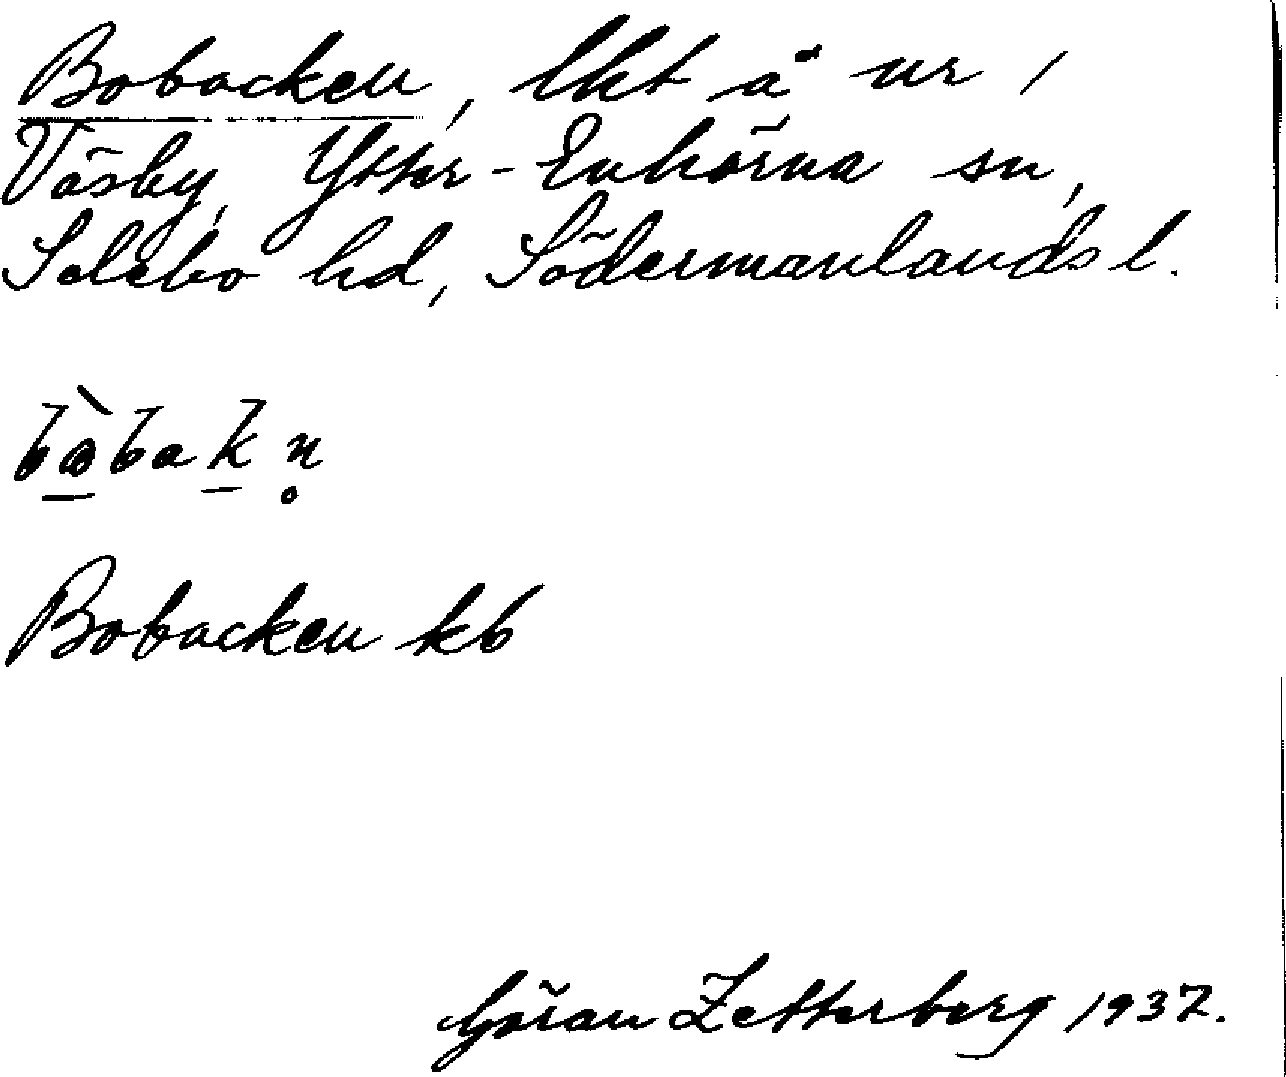 Bobacken, lkt å nr 1
Väsby, Ytter-Enhörna sn,
Selebo hd, Södermanlands l.
bòbakn̥
Bobacken kb
Göran Zetterberg 1937.